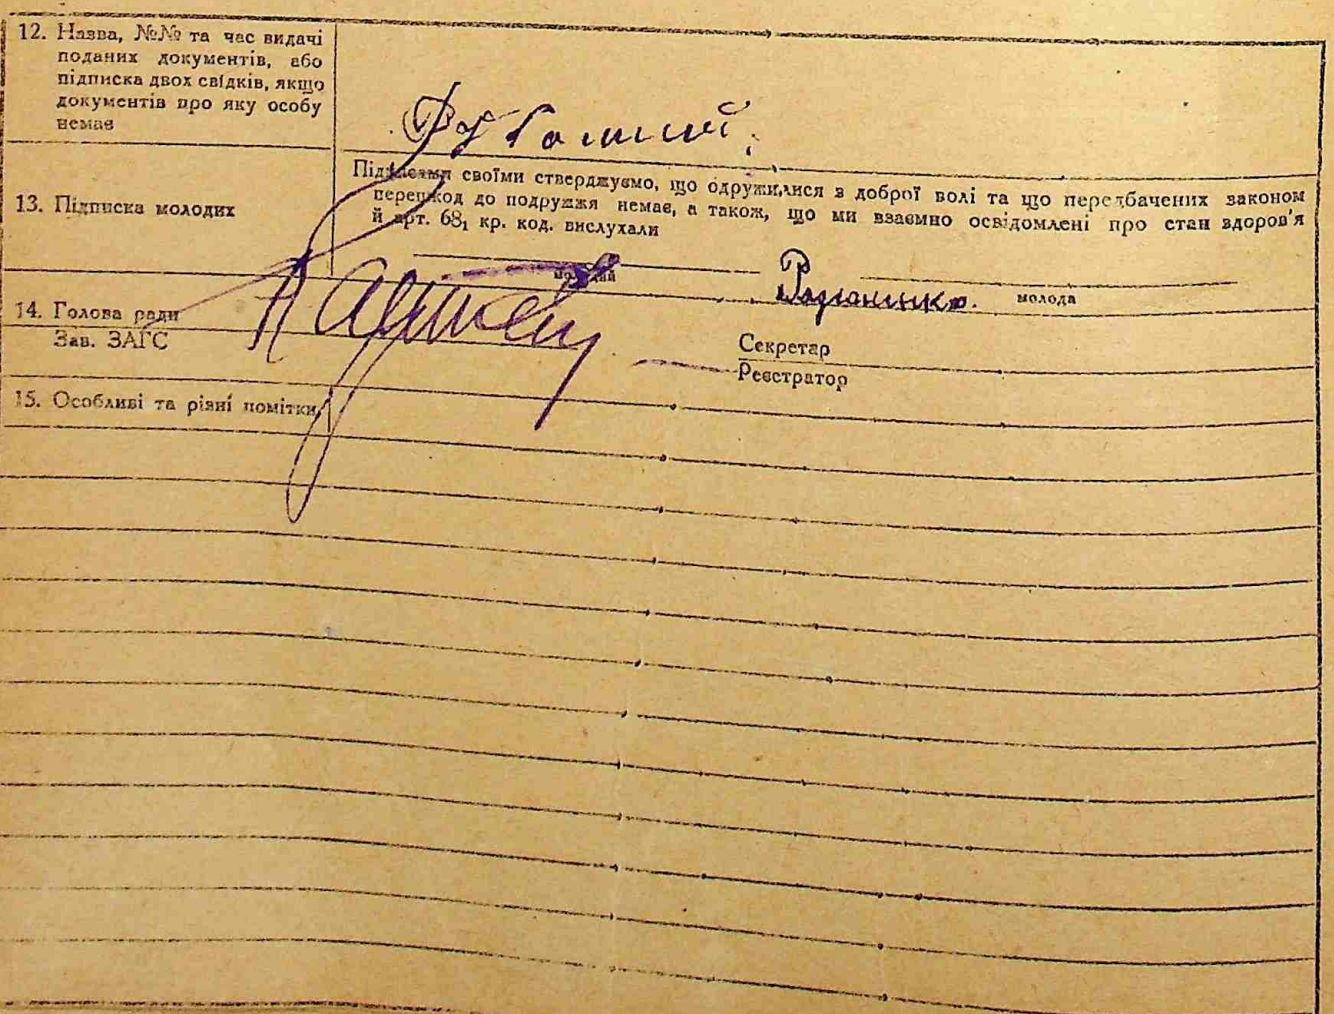 12. Назва, №№ та час видачі
поданих документів, або
підписка двох свідків, якщо
документів про яку особу
немає
13. Підписка молодих
Підписами своїми стверджуємо, що одружилися з доброї волі та що передбачених законом
перешкод до подружжя немає, а також, що ми взаємно освідомлені про стан здоров'я
й арт. 68₁ кр. код. вислухали
молодий
молода
14. Голова ради
Зав. ЗАГС
Секретар
Реєстратор
15. Особливі та різні помітки